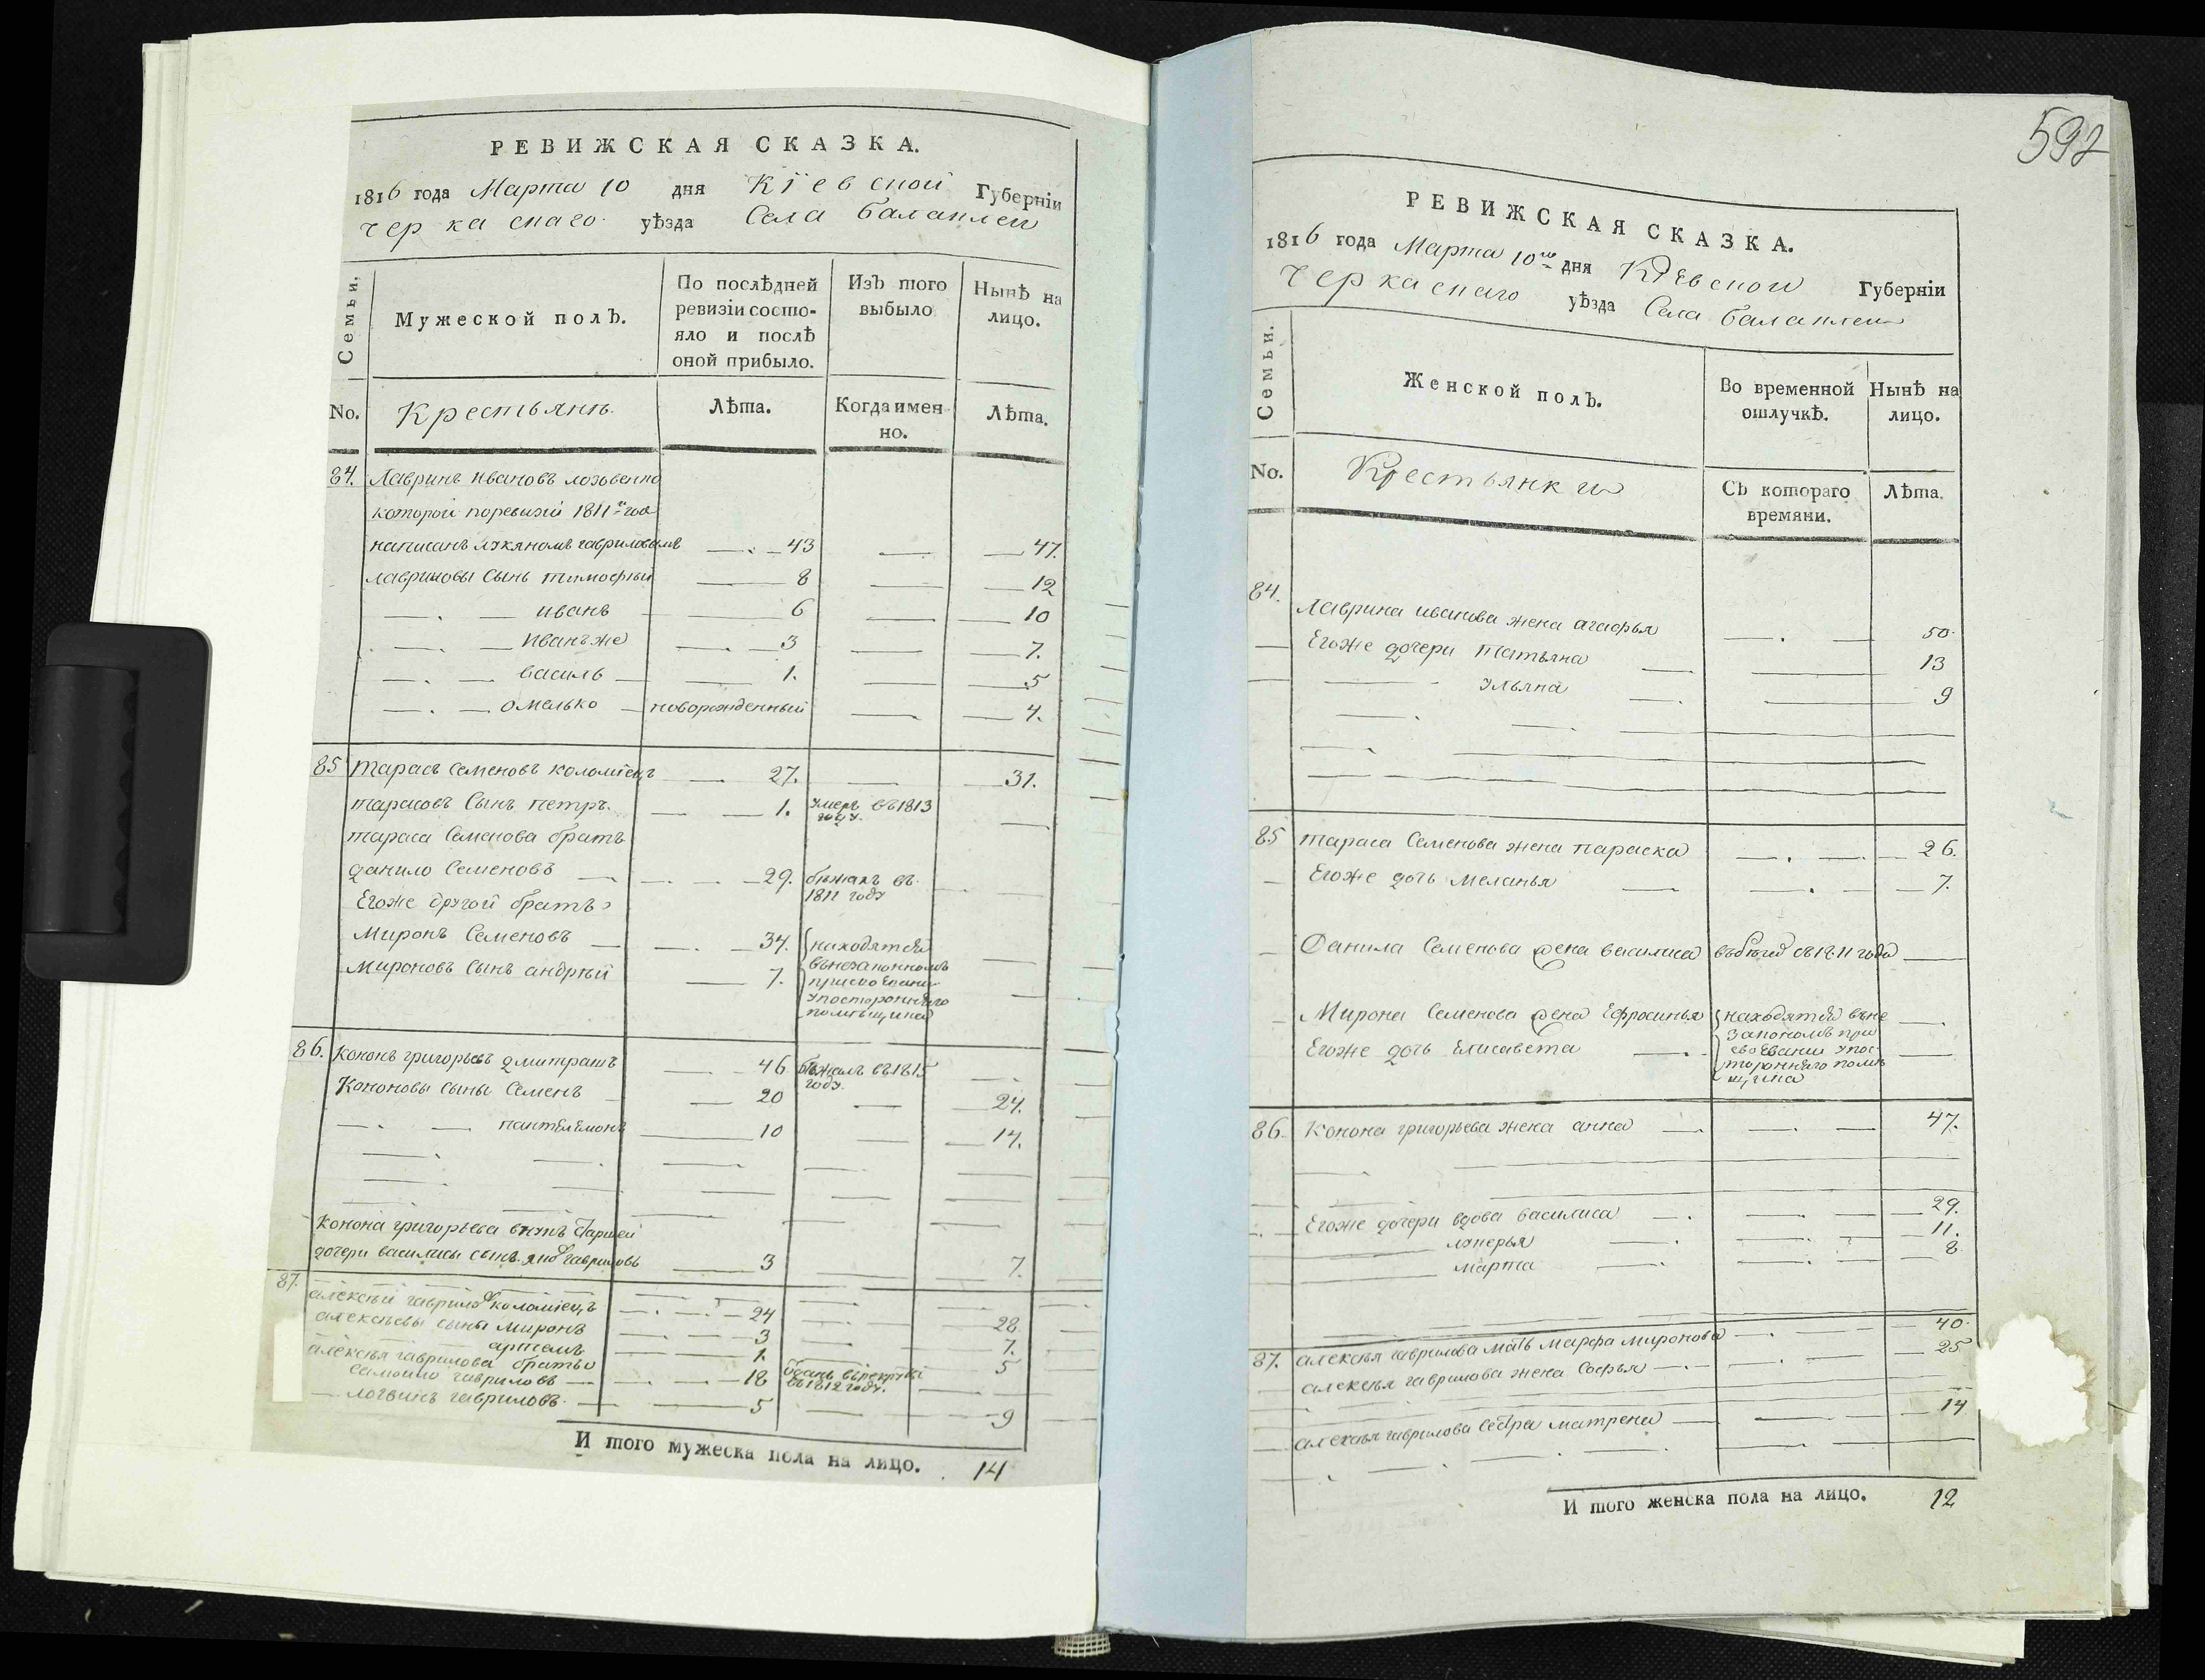 РЕВИЖСКАЯ СКАЗКА.
1816 года Марта 10 дня Кіевской Губерніи
Черкаскаго уѣзда Села Балаклеи
Семьи.
Мужеской полЪ.
По послѣдней ревизіи состояло и послѣ оной прибыло.
ИзЪ того выбыло
Нынѣ на лицо.
No.
Крестьянъ.
Лѣта.
Когда именно.
Лѣта.
84. Лавринъ Ивановъ лозовенко
которой поревизіи 1811го года
написанъ лукяномъ гавриловымъ 43 47.
лавриновы Сынъ тимофѣй 8 12
иванъ 6 10
Иванъ же 3 7.
василь 1. 5
омелько новорожденный 4.
85 тарасъ Семеновъ коломіецъ 27. 31.
тарасовъ Сынъ петръ. 1. умеръ въ1813
году.
тараса Семенова братъ
данило Семеновъ 29. бѣжалъ въ
1811 году
Егоже другой братъ
Миронъ Семеновъ 34. находятся
Мироновъ Сынъ андрѣй 7. внезаконномъ
присвоении
упосторонняго
помѣщика
86. кононъ григорьевъ дмитрашъ 46 бѣжалъ въ1815
году.
Кононовы сыны Семенъ 20 24.
пантелемонъ 10 14.
конона григорьева внукъ Старшей
дочери василисы сынъ яковъ гавриловъ 3 7.
87. алексѣй гавриловъ коломіецъ 24 28
алексѣевы сыны миронъ 3 7.
артемъ 1. 5
алексѣя гаврилова братья
самойло гавриловъ 18 отданъ врекруты
въ1812 году.
логвинъ гавриловъ. 5 9
И того мужеска пола на лицо. 14
592
РЕВИЖСКАЯ СКАЗКА.
1816 года Марта 10го дня Кіевской Губерніи
Черкаскаго уѣзда Села балаклеи
Семьи.
Женской полЪ.
Во временной отлучкѣ.
Нынѣ на лицо.
No.
Крестьянки
СЪ котораго времяни.
Лѣта.
84. Лаврина иванова жена агафья 50.
Егоже дочери татьяна 13
ульяна 9
85 тараса Семенова жена параска 26.
Егоже дочь меланья 7.
Данила Семенова жена василиса въбѣгах съ1811 года
Мирона Семенова жена Ефросинья находятся вне
Егоже дочь Елисавета закономъ при
своении упос
торонняго помѣ
щика
86. Конона григорьева жена анна 47.
Егоже дочери вдова василиса 29.
лукерья 11.
марта 8
87. алексѣя гаврилова мать марфа миронова 40.
алексѣя гаврилова жена Софья 25
алексѣя гаврилова сестра матрена 14
И того женска пола на лицо. 12